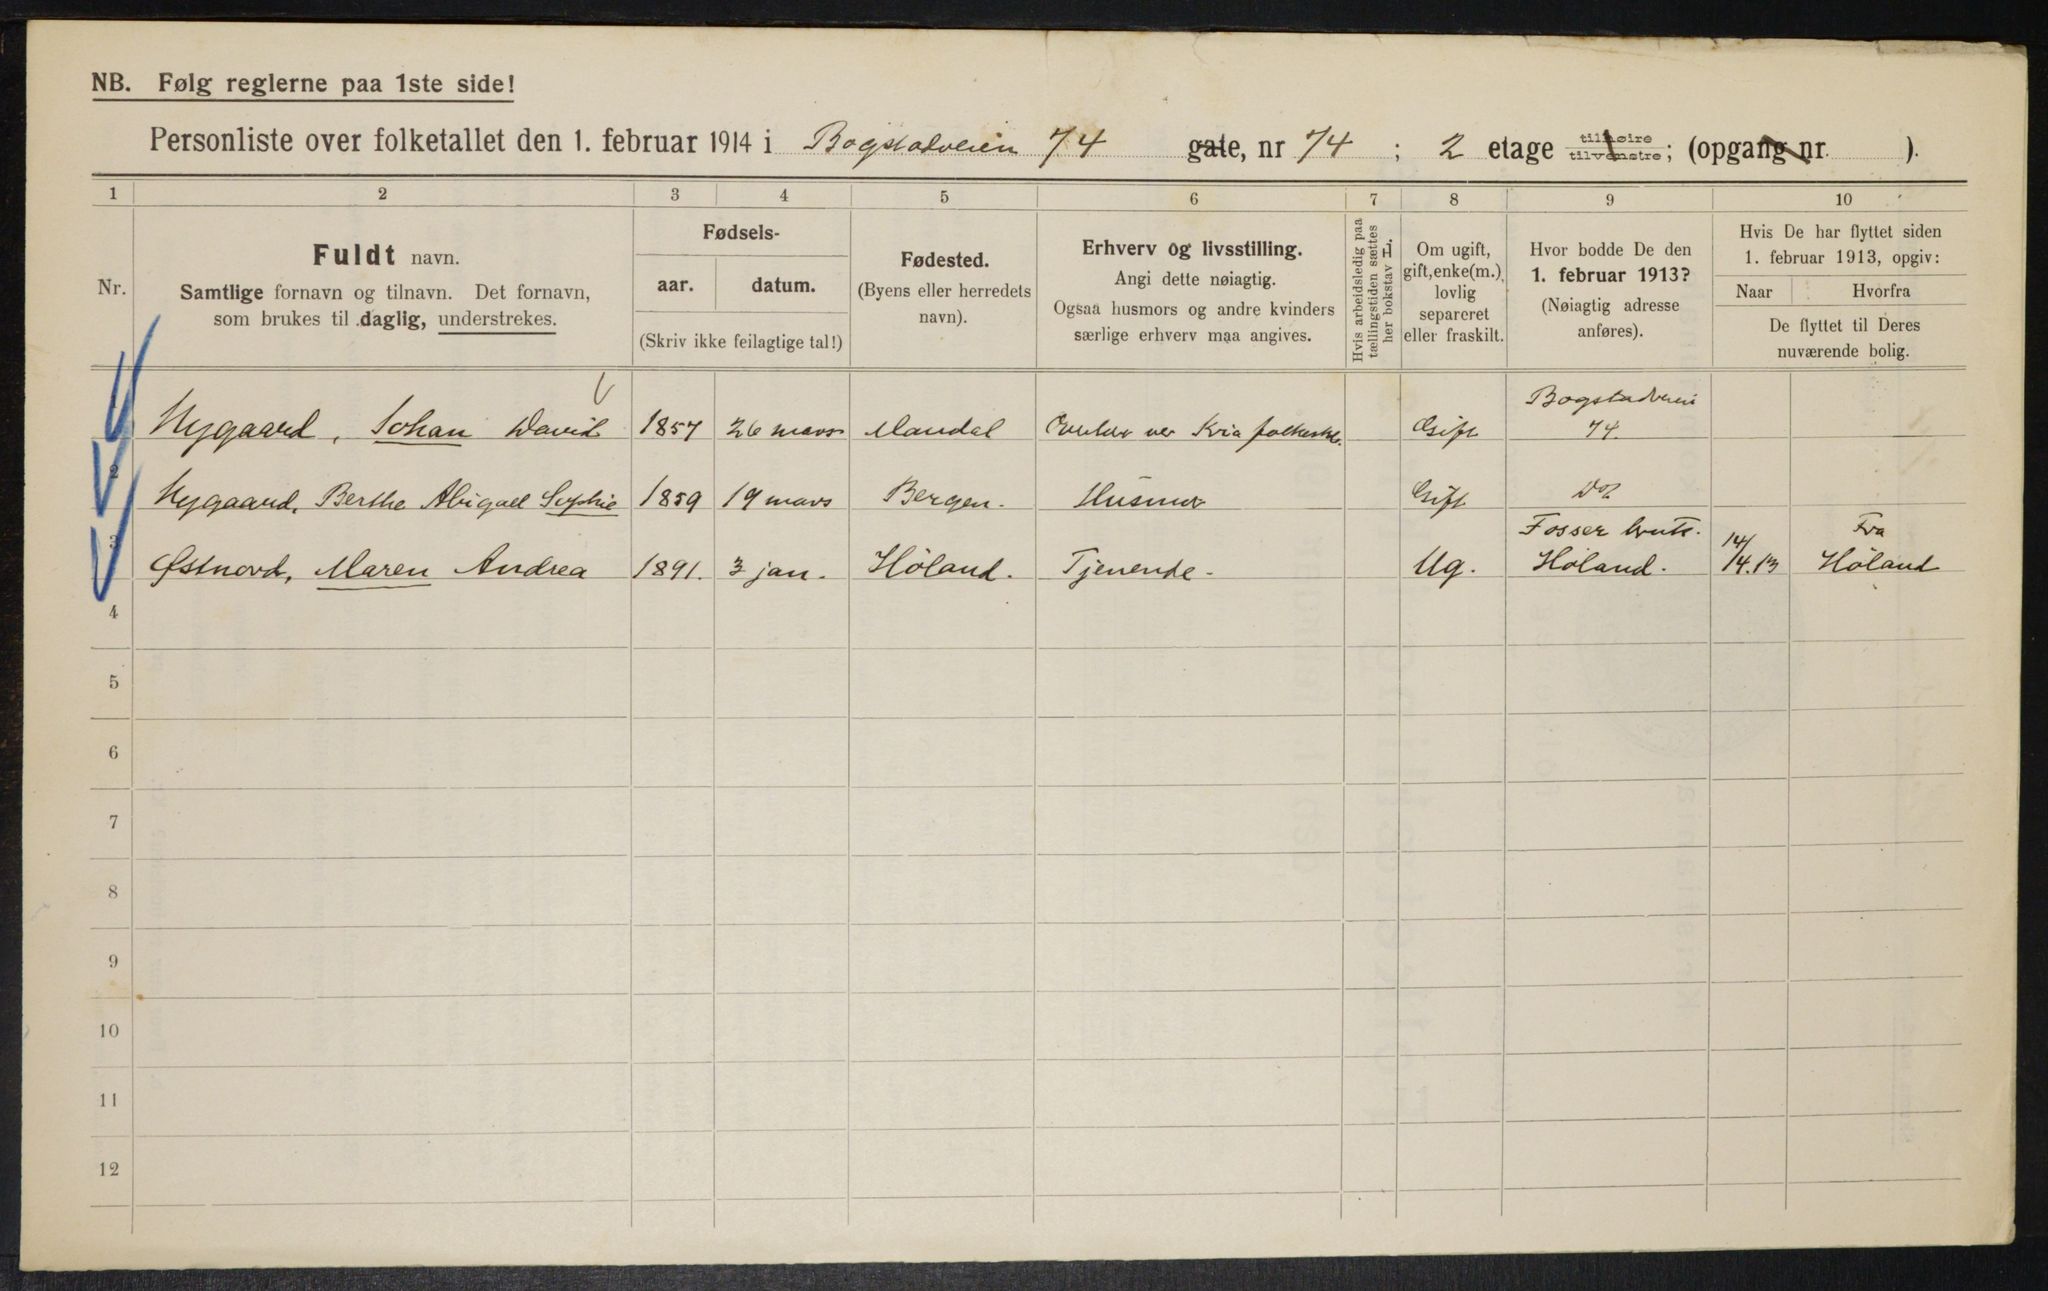 NB. Følg reglerne paa 1ste side!
Personliste over folketallet den 1. februar 1914 i Bogstadveien 74 gate, nr 74 ; 2 etage tilhøire tilvenstre; (opgang nr. ).
1 2 3 4 5 6 7 8 9 10
Nr.
Fuldt navn.
Samtlige fornavn og tilnavn. Det fornavn,
som brukes til daglig, understrekes.
Fødsels-
aar. datum.
(Skriv ikke feilagtige tal!)
Fødested.
(Byens eller herredets
navn).
Erhverv og livsstilling.
Angi dette nøiagtig.
Ogsaa husmors og andre kvinders
særlige erhverv maa angives.
Hvis arbeidsledig paa
tællingstiden sættes
her bokstav L
Om ugift,
gift, enke(m.),
lovlig
separeret
eller fraskilt.
Hvor bodde De den
1. februar 1913?
(Nøiagtig adresse
anføres).
Hvis De har flyttet siden
1. februar 1913, opgiv:
Naar Hvorfra
De flyttet til Deres
nuværende bolig.
1 Nygaard, Johan David 1857 26 mars Mandal ved Kria folkesk. Gift Bogstadveien
74.
2 Nygaard, Berthe Abigael Sophie 1859 19 mars Bergen. Husmor Gift Do
3 Østnord, Maren Andrea 1891. 3 jan. Höland. Tjenende. Ug. Fosser
Höland. 14/ 14.13 Fra
Höland
4
5
6
7
8
9
10
11
12